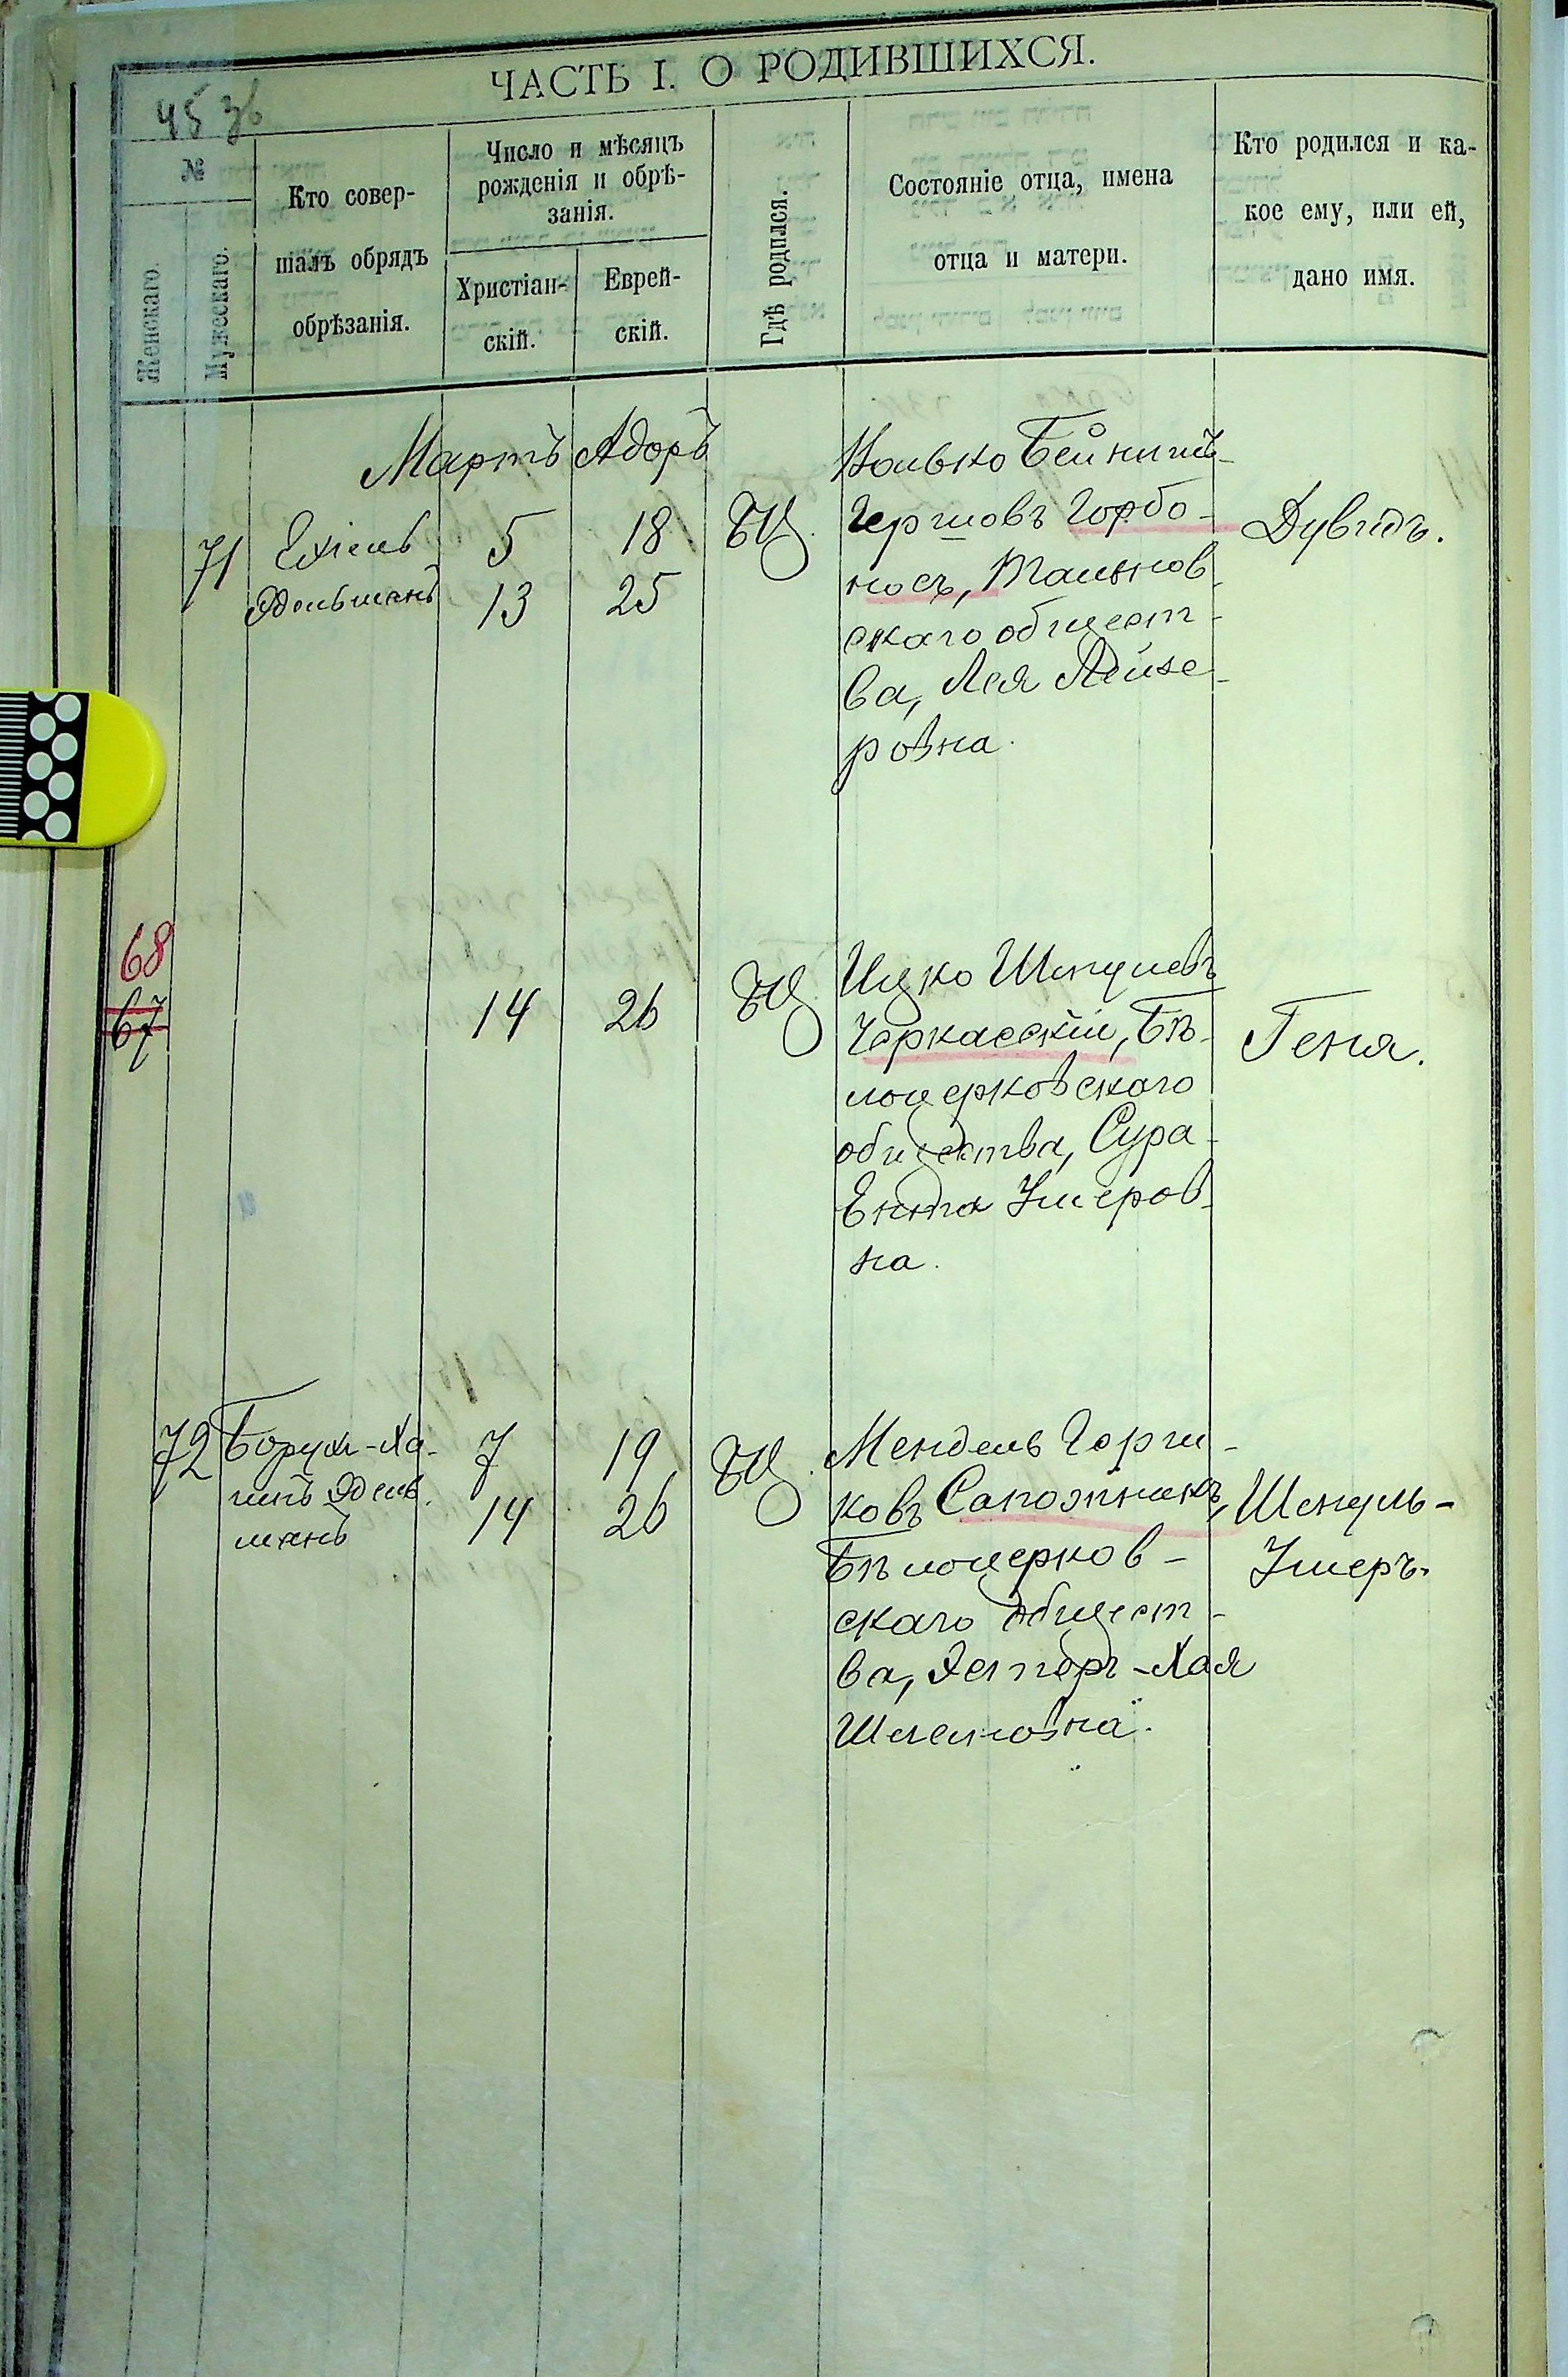 ЧАСТЬ I. О РОДИВШИХСЯ.
45 зв
№
Женскаго.
Мужескаго.
Кто совер-
шалъ обрядъ
обрѣзанія.
Число и мѣсяцъ
рожденія и обрѣ-
занія.
Христіан-
скій.
Еврей-
скій.
Гдѣ родился.
Состояніе отца, имена
отца и матери.
Кто родился и ка-
кое ему, или ей,
дано имя.
Мартъ Адоръ
71
Ехіель
Эдельманъ
5
13
18
25
БЦ.
Волько
Гершовъ Горбо-
носъ, Тальнов-
скаго общест-
ва, Лея Лейзе-
ровна.
Дувидъ.
68
67
14
26
БЦ.
Ицко Шмулевъ
Черкасскій, Бѣ-
лоцерковскаго
общества, Сура-
Ента Умеров-
на.
Геня.
72
Борух-Ха-
имъ Эдель-
манъ
7
14
19
26
БЦ.
Мендель Горш-
ковъ Сапожникъ,
Бѣлоцерков-
скаго общест-
ва, Эстеръ-Хая
Шлемовна.
Шмуль-
Умеръ.